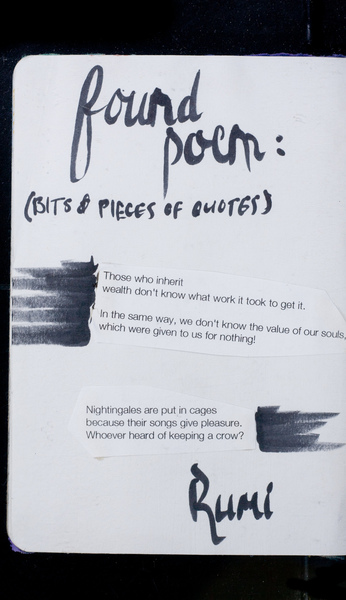 found
poem:
(BITS & PIECES OF QUOTES)
Those who inherit
wealth don't know what work it took to get it.
In the same way, we don't know the value of our souls,
which were given to us for nothing!
Nightingales are put in cages
because their songs give pleasure.
Whoever heard of keeping a crow?
Rumi